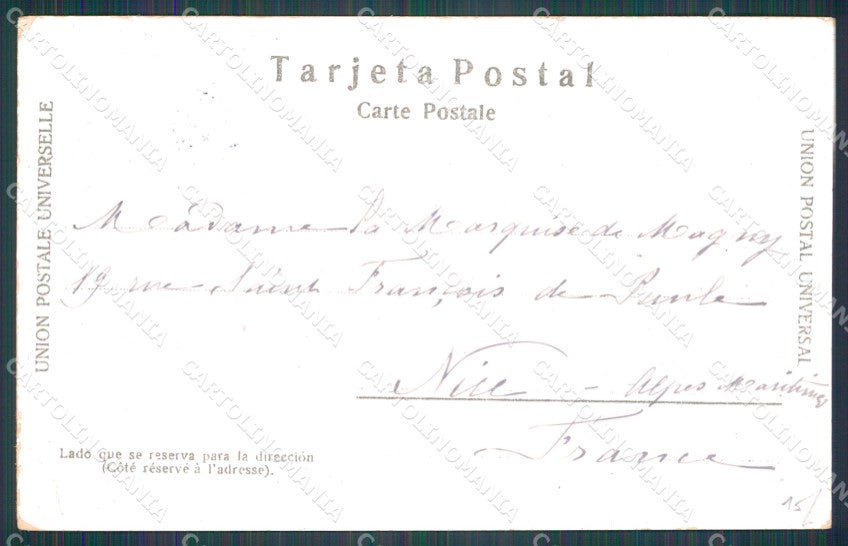 Tarjeta Postal
Carte Postale
UNION POSTALE UNIVERSELLE
UNION POSTAL UNIVERSAL
Madame la Marquise de Magny
19 rue Saint François de Paule
Nice - Alpes Maritimes
France
Lado que se reserva para la dirección
(Côté réservé à l'adresse).
15
CARTOLINOMANIA